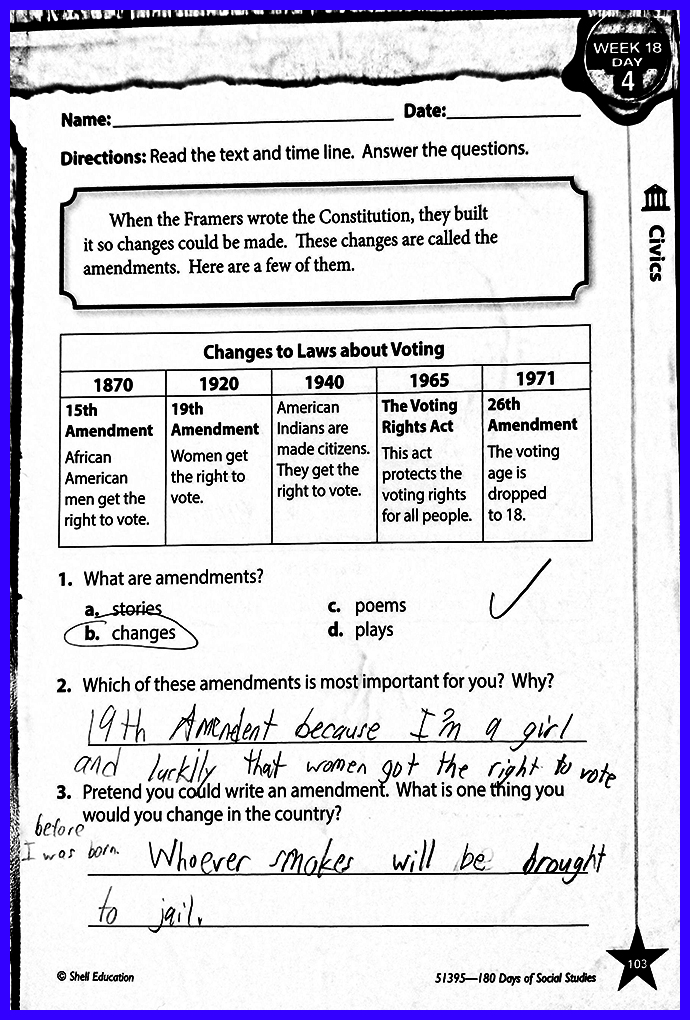 WEEK 18
DAY
4
Name: Date:
Directions: Read the text and time line. Answer the questions.
Civics
When the Framers wrote the Constitution, they built
it so changes could be made. These changes are called the
amendments. Here are a few of them.
Changes to Laws about Voting
1870 1920 1940 1965 1971
15th
Amendment
African
American
men get the
right to vote.
19th
Amendment
Women get
the right to
vote.
American
Indians are
made citizens.
They get the
right to vote.
The Voting
Rights Act
This act
protects the
voting rights
for all people.
26th
Amendment
The voting
age is
dropped
to 18.
1. What are amendments?
a. stories
b. changes
c. poems
d. plays
2. Which of these amendments is most important for you? Why?
19th Amendent because I'm a girl
and luckily that women got the right to vote
before
I was born.
3. Pretend you could write an amendment. What is one thing you
would you change in the country?
Whoever smokes will be brought
to jail.
© Shell Education
51395—180 Days of Social Studies
103